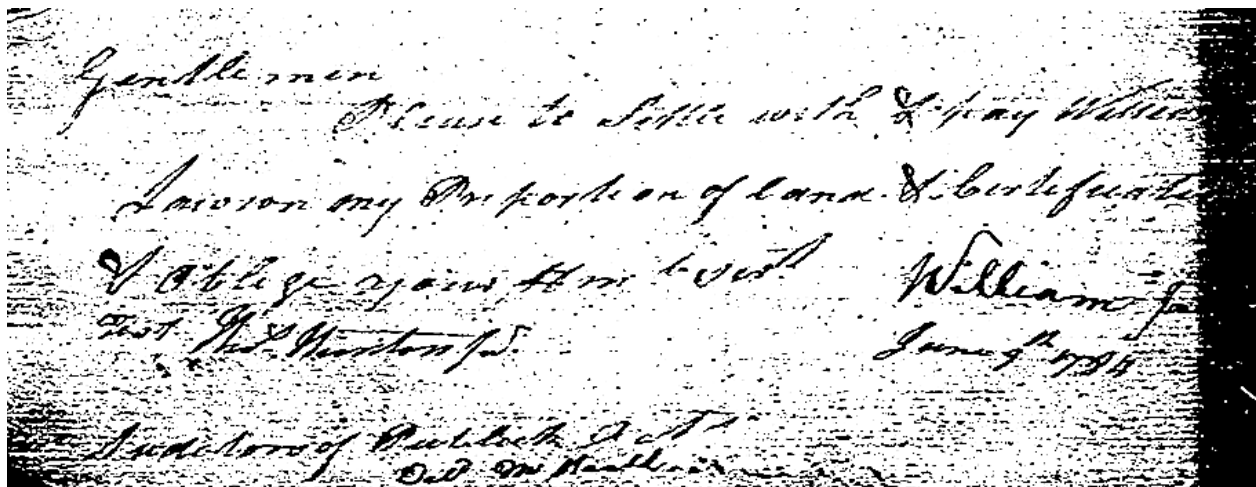 Gentlemen
Please to Settle with & pay William
Lawson my Proportion of land & Certificate
& Oblige yours Hmble Servt
William
Test Jur.
June 9th
Auditors of Publick Acts